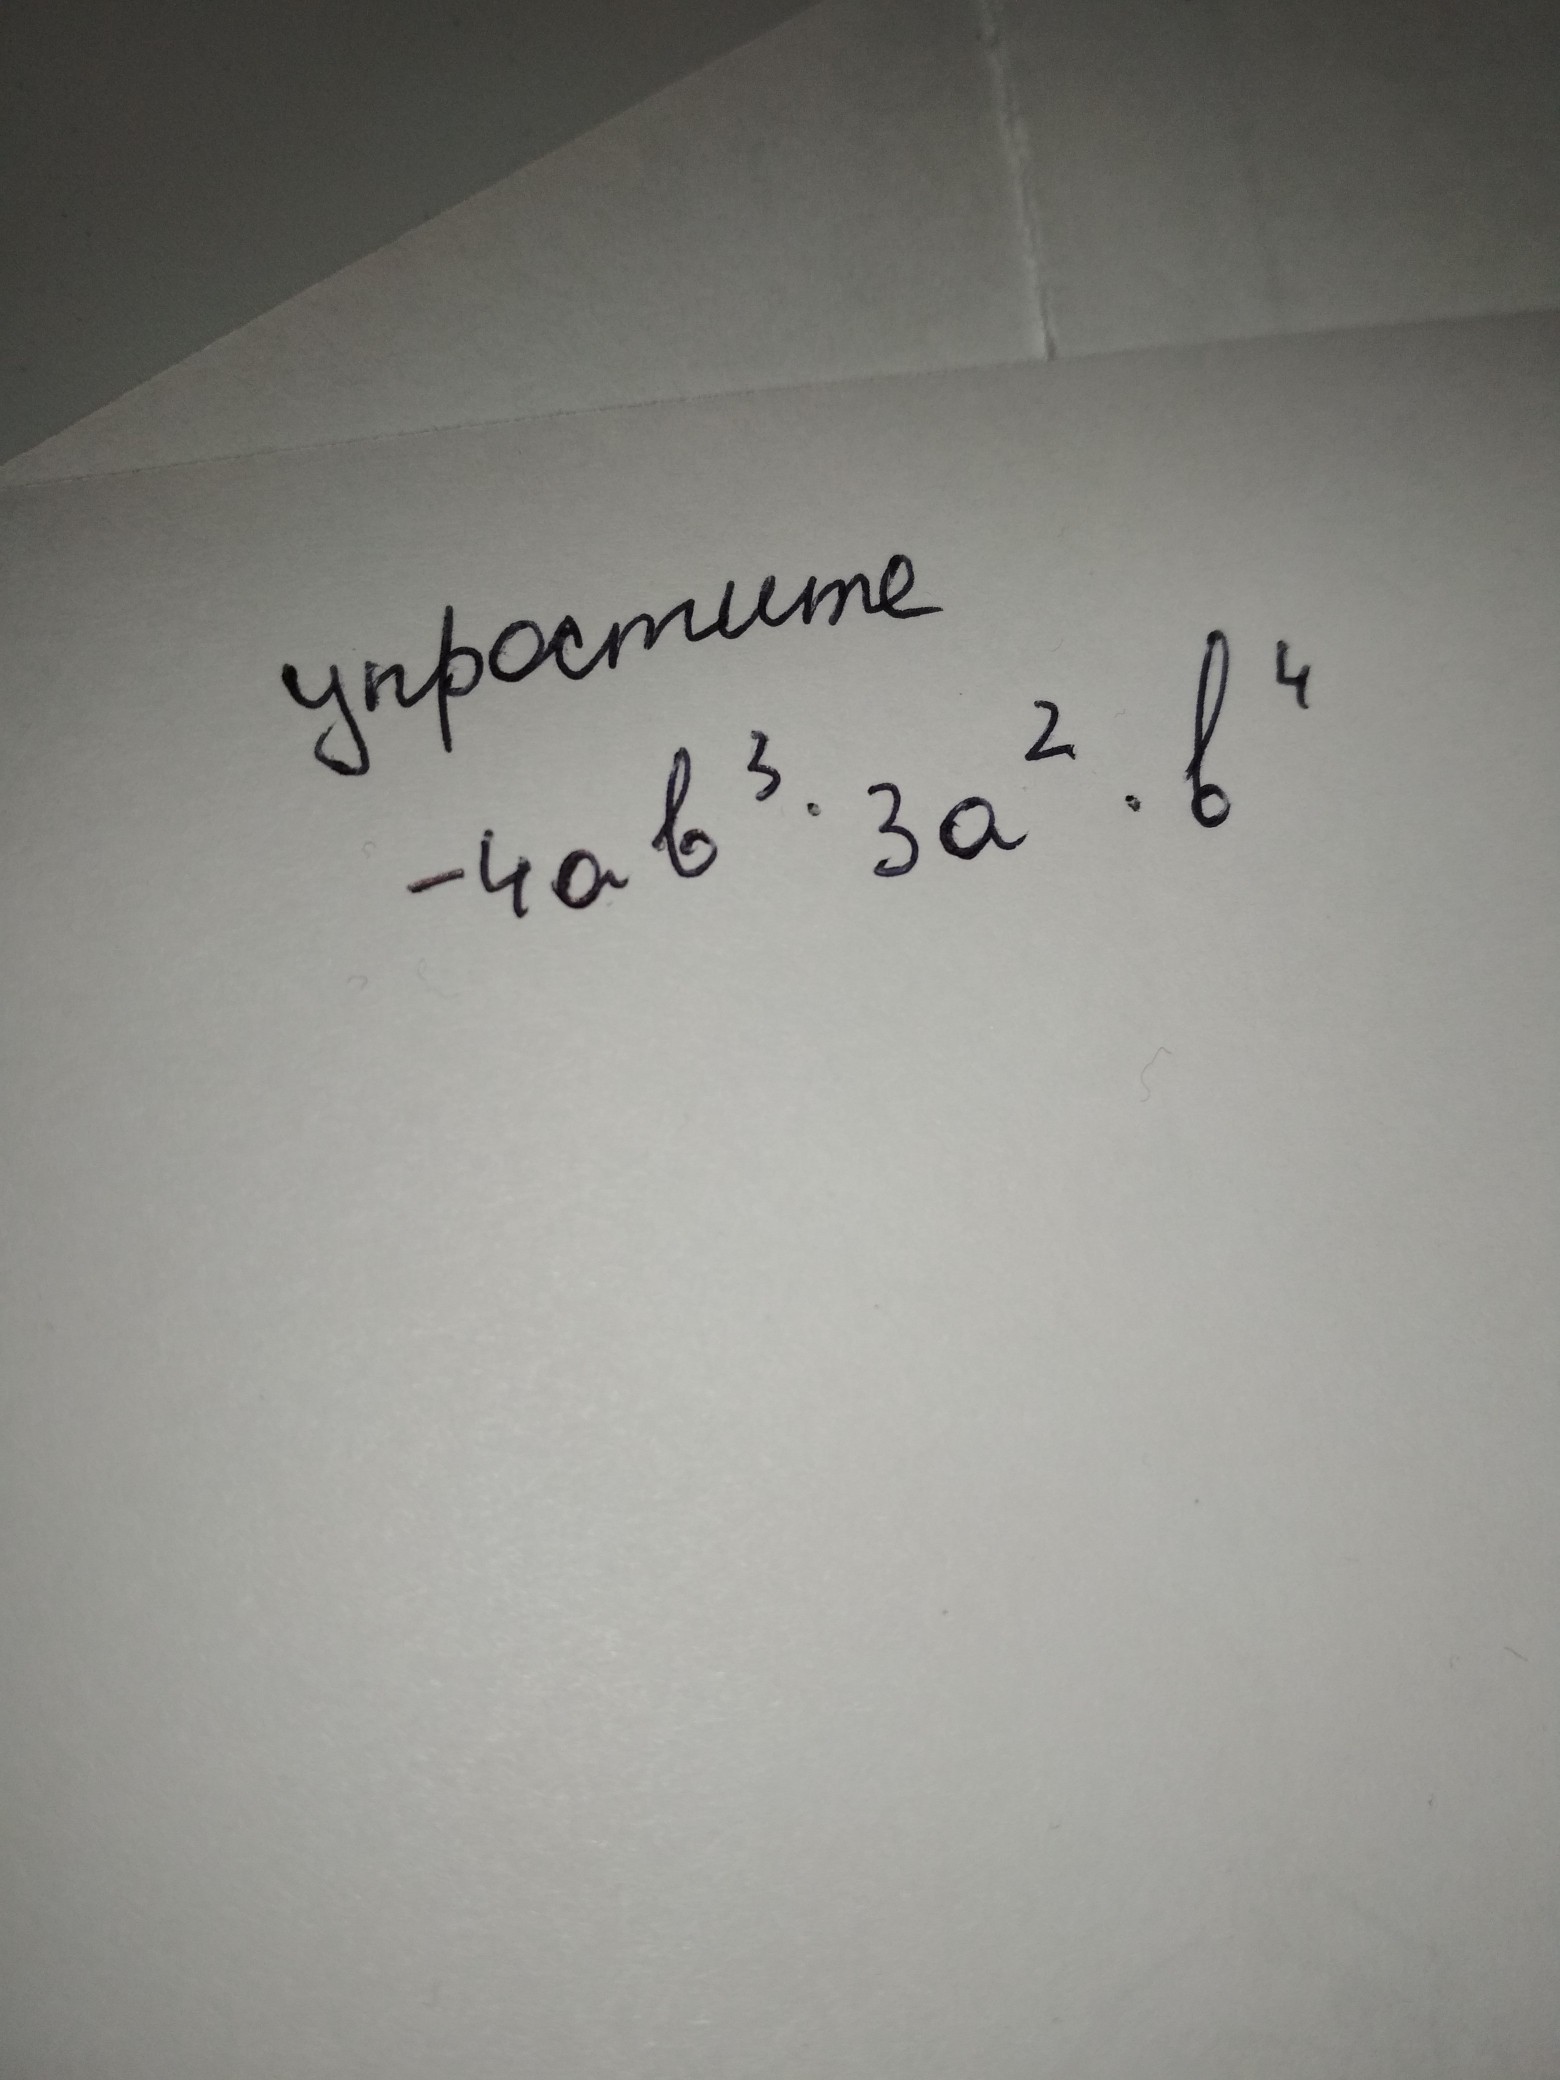 упростите
-4ab³·3a²·b⁴